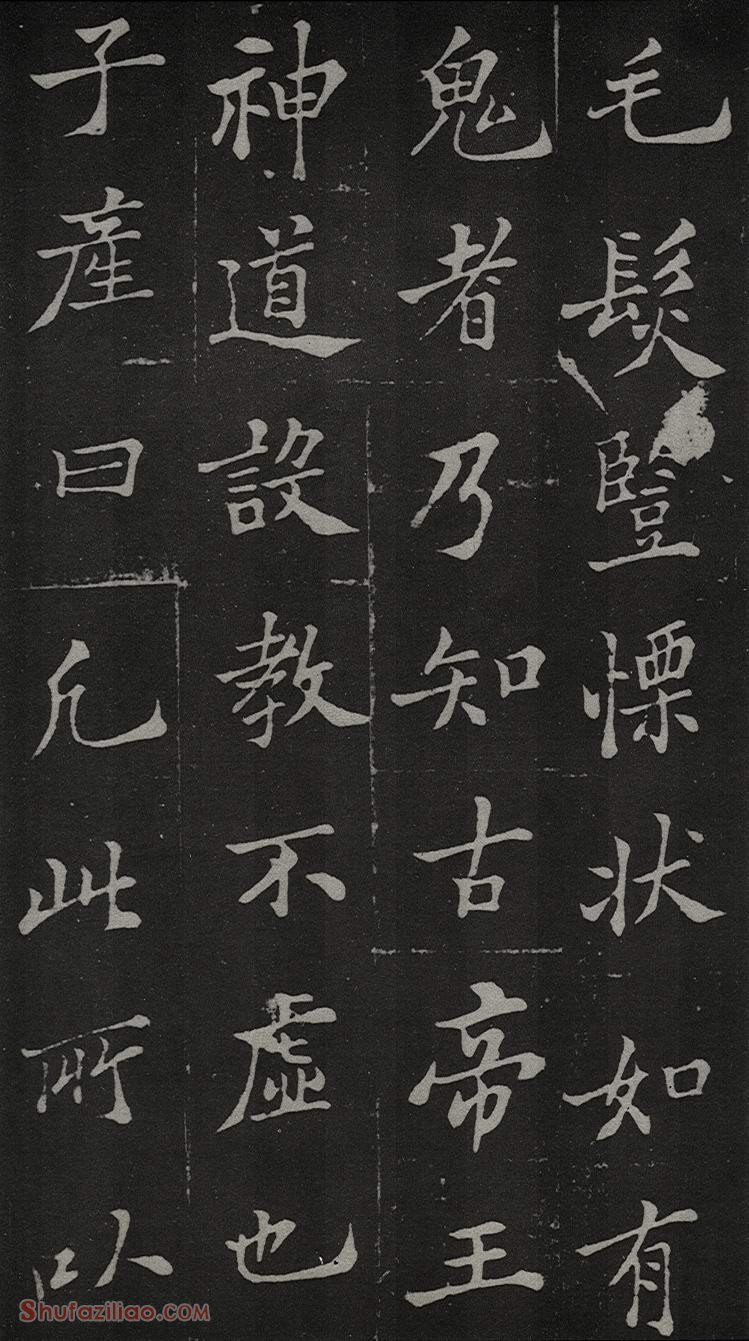 毛髮豎慄狀如有
鬼者乃知古帝王
神道設教不虛也
子產曰凡此所以
Shufaziliao.com